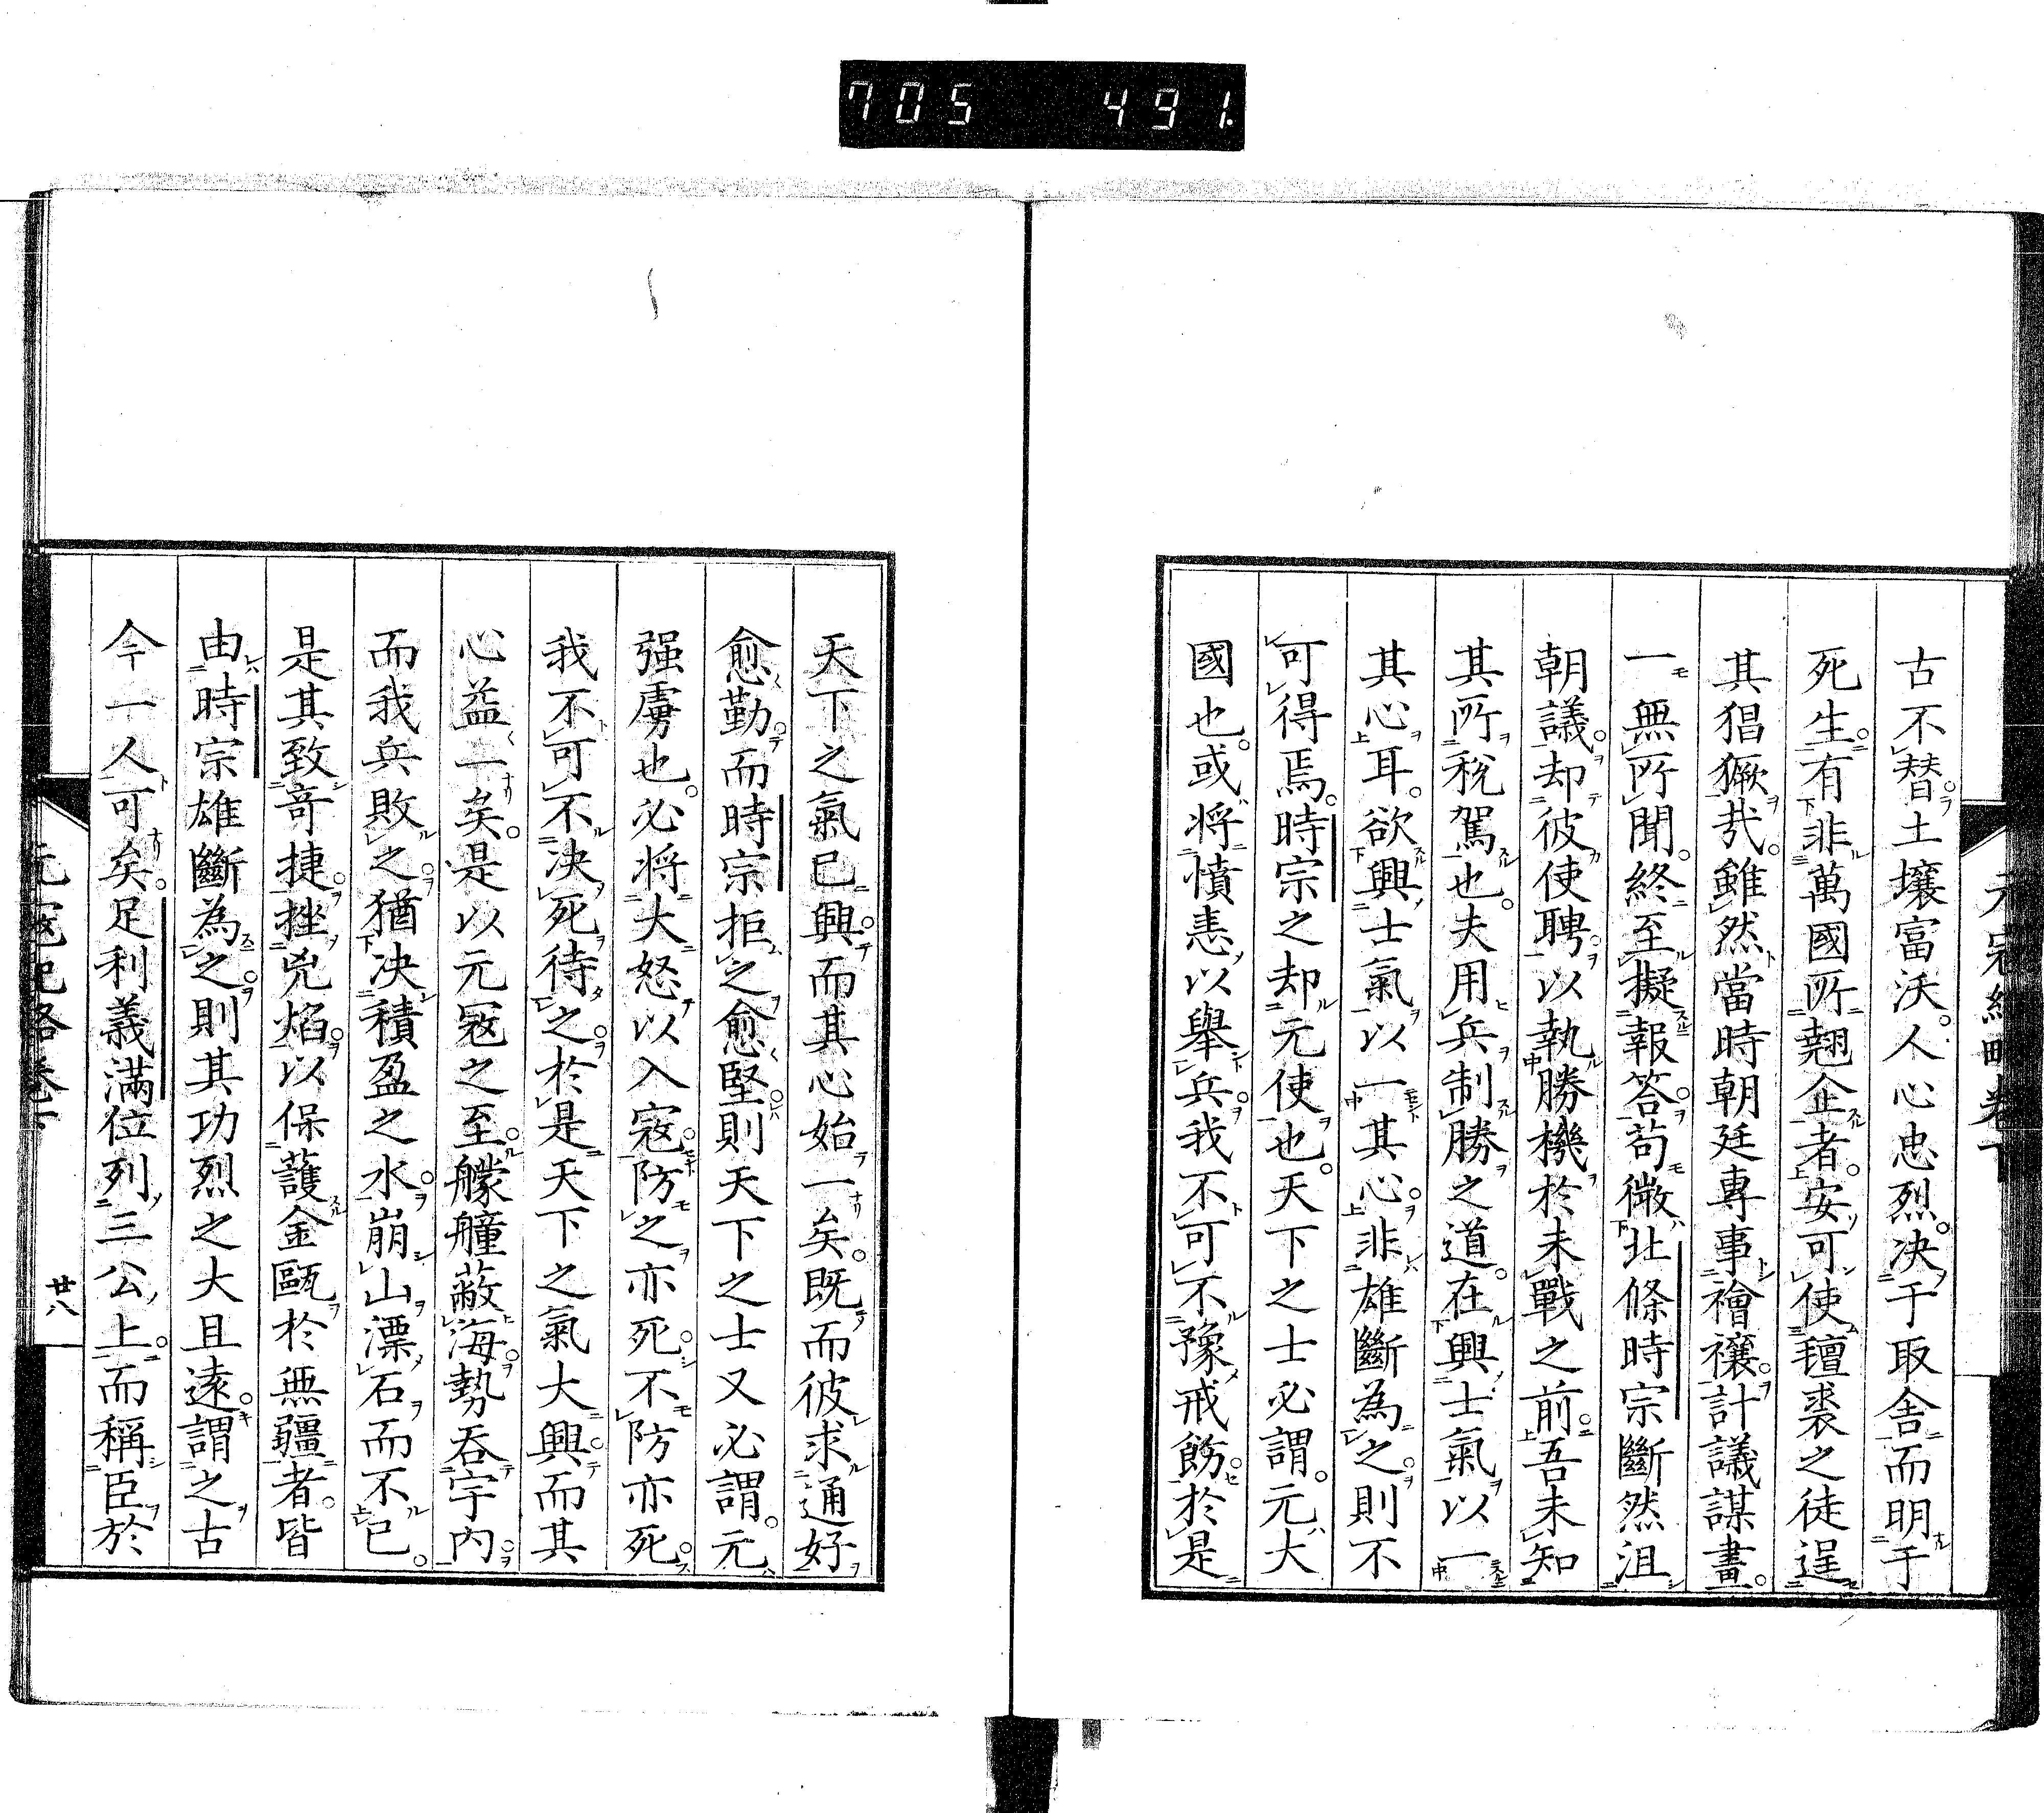 705 491.
古不替土壤富沃人心忠烈決于取舍而明于
死生有非萬國所翹企者安可使氊裘之徒逞
其猖獗㦲雖然當時朝廷專事禬禳計議謀畫
一無所聞終至擬報答苟微北條時宗斷然沮
朝議却彼使聘以執勝機於未戰之前吾未知
其所稅駕也夫用兵制勝之道在興士氣以一
其心耳欲興士氣以一其心非雄斷為之則不
可得焉時宗之却元使也天下之士必謂元大
國也或將憤恚以舉兵我不可不豫戒飭於是
天下之氣已興而其心始一矣既而彼求通好
愈勤而時宗拒之愈堅則天下之士又必謂元
强虜也必將大怒以入寇防之亦死不防亦死
我不可不決死待之於是天下之氣大興而其
心益一矣是以元寇之至艨艟蔽海勢呑宇內
而我兵敗之猶決積盈之水崩山漂石而不已
是其致奇捷挫兇焰以保護金甌於無疆者皆
由時宗雄斷為之則其功烈之大且遠謂之古
今一人可矣足利義滿位列三公上而稱臣於
廿八